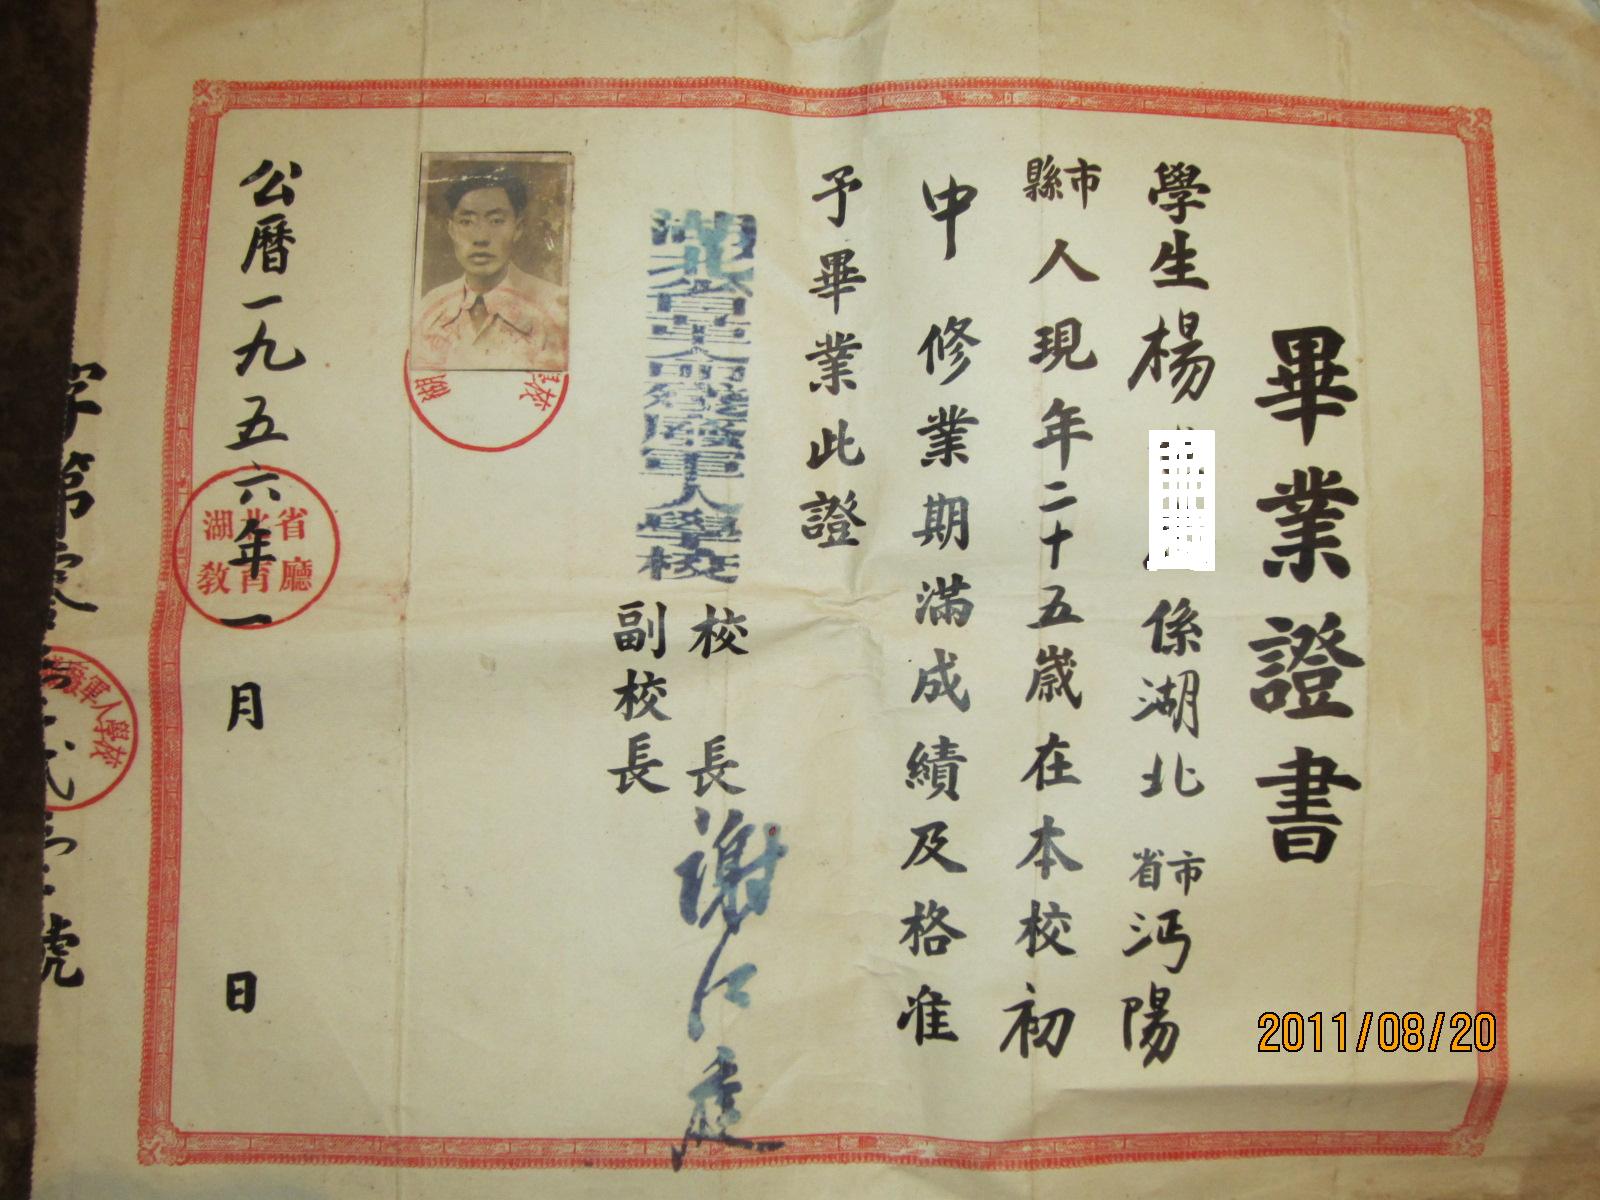 畢業證書
學生楊
係湖北省市沔陽
縣市人現年二十五歲在本校初
中修業期滿成績及格准
予畢業此證
湖北省革命殘廢軍人學校
校長謝仁庭
副校長
公曆一九五六年一月日
湖北省
教育廳
軍人學校
字第
號
2011/08/20